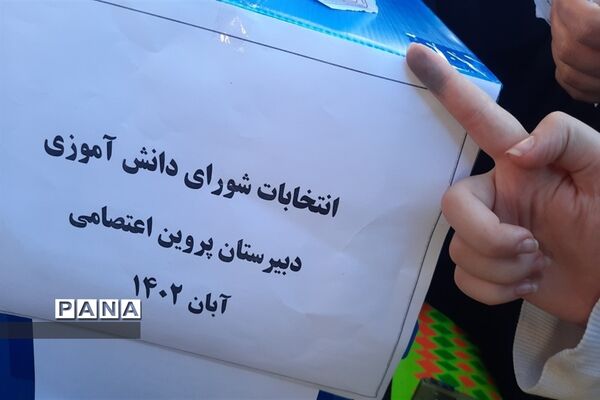 انتخابات شورای دانش آموزی
دبیرستان پروین اعتصامی
آبان ۱۴۰۲
PANA